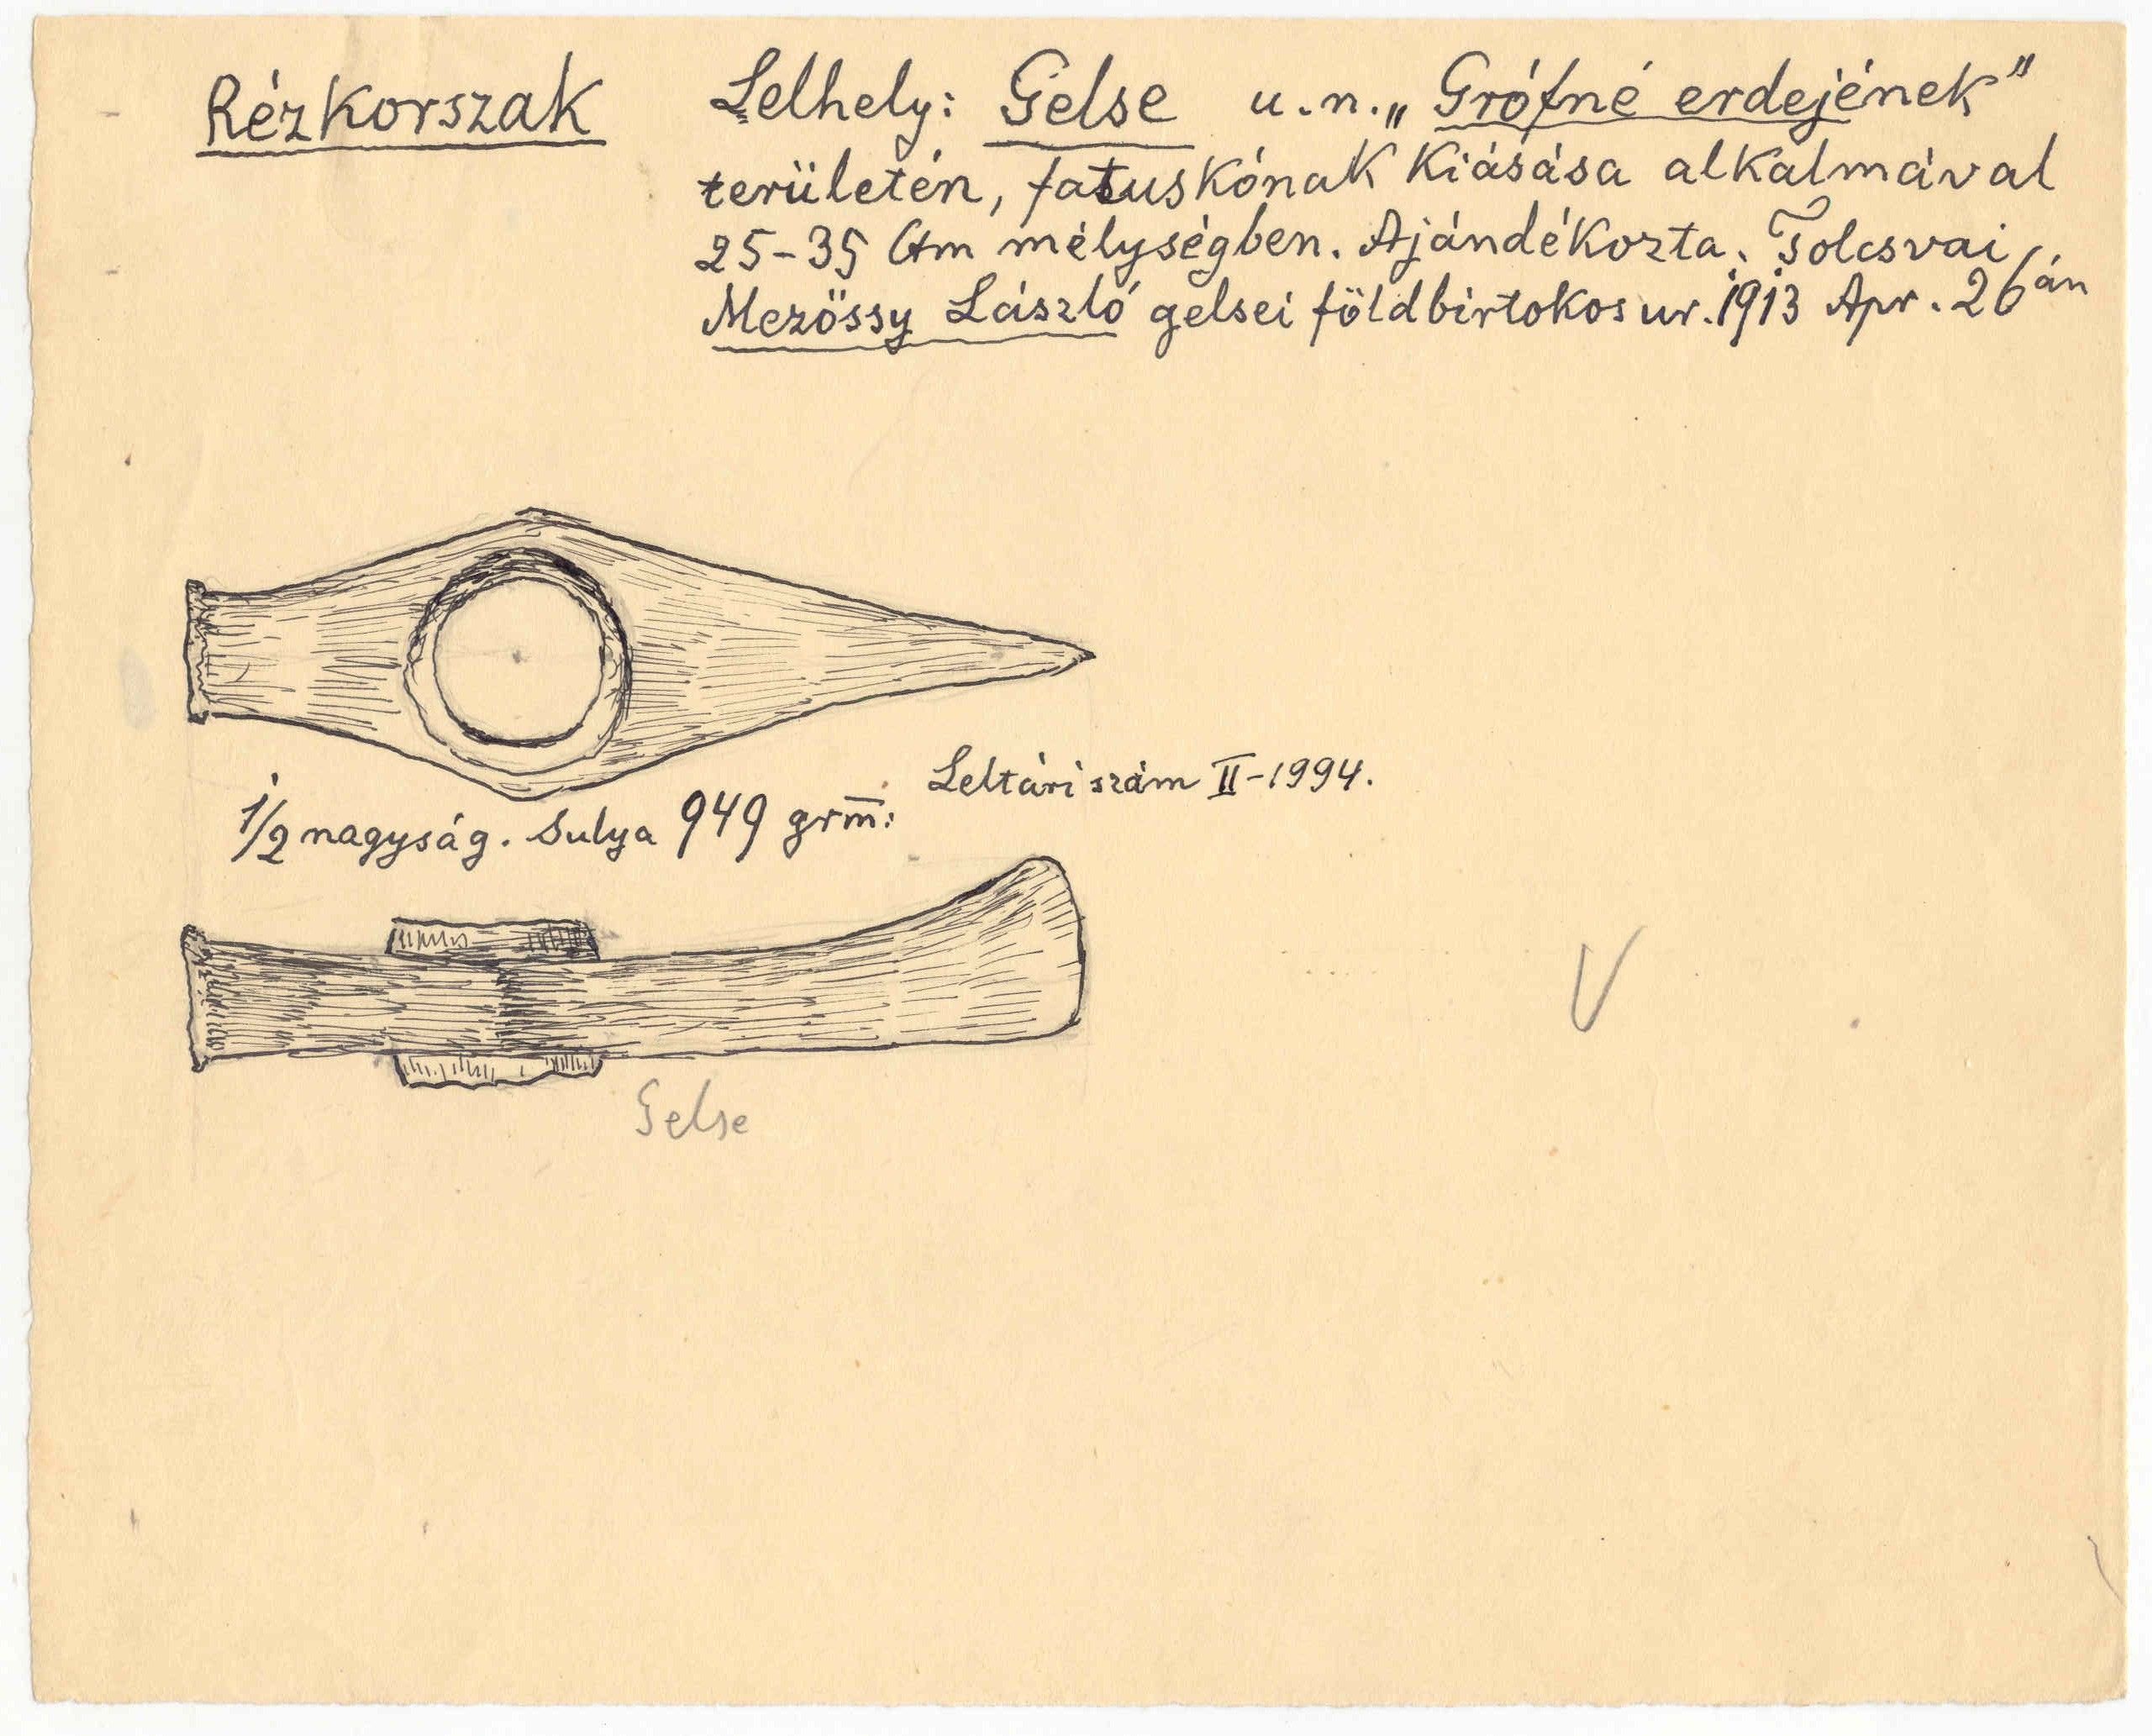 Rézkorszak
Lelhely: Gelse u.n. „Grófné erdejének"
területén, fatuskónak kiásása alkalmával
25-35 Ctm mélységben. Ajándékozta. Tolcsvai
Mezössy László gelsei földbirtokos ur. 1913 Apr. 26án
Leltári szám II-1994.
1/2 nagyság. Sulya 949 grm:
Gelse